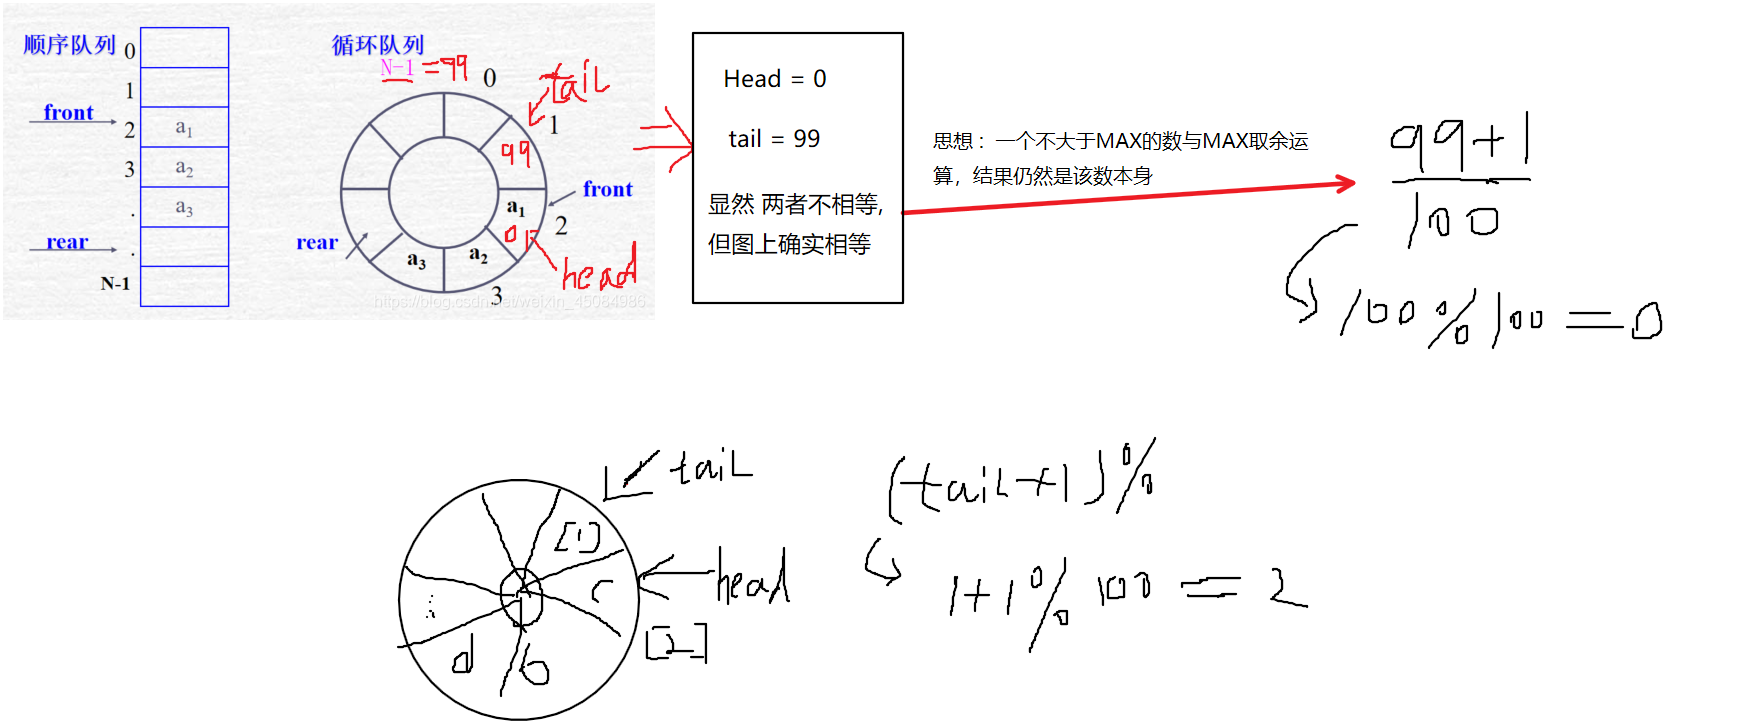 顺序队列
0
1
front
2
a1
3
a2
.
a3
rear
.
N-1
循环队列
N-1 = 99
0
tail
1
99
front
a1
2
01
rear
a3
a2
head
3
https://blog.csdn.net/weixin_45084986
Head = 0
tail = 99
显然 两者不相等,
但图上确实相等
思想：一个不大于MAX的数与MAX取余运
算，结果仍然是该数本身
99+1
100
100%100=0
tail
[1]
head
c
[2]
d
b
(tail+1)%
1+1%100=2